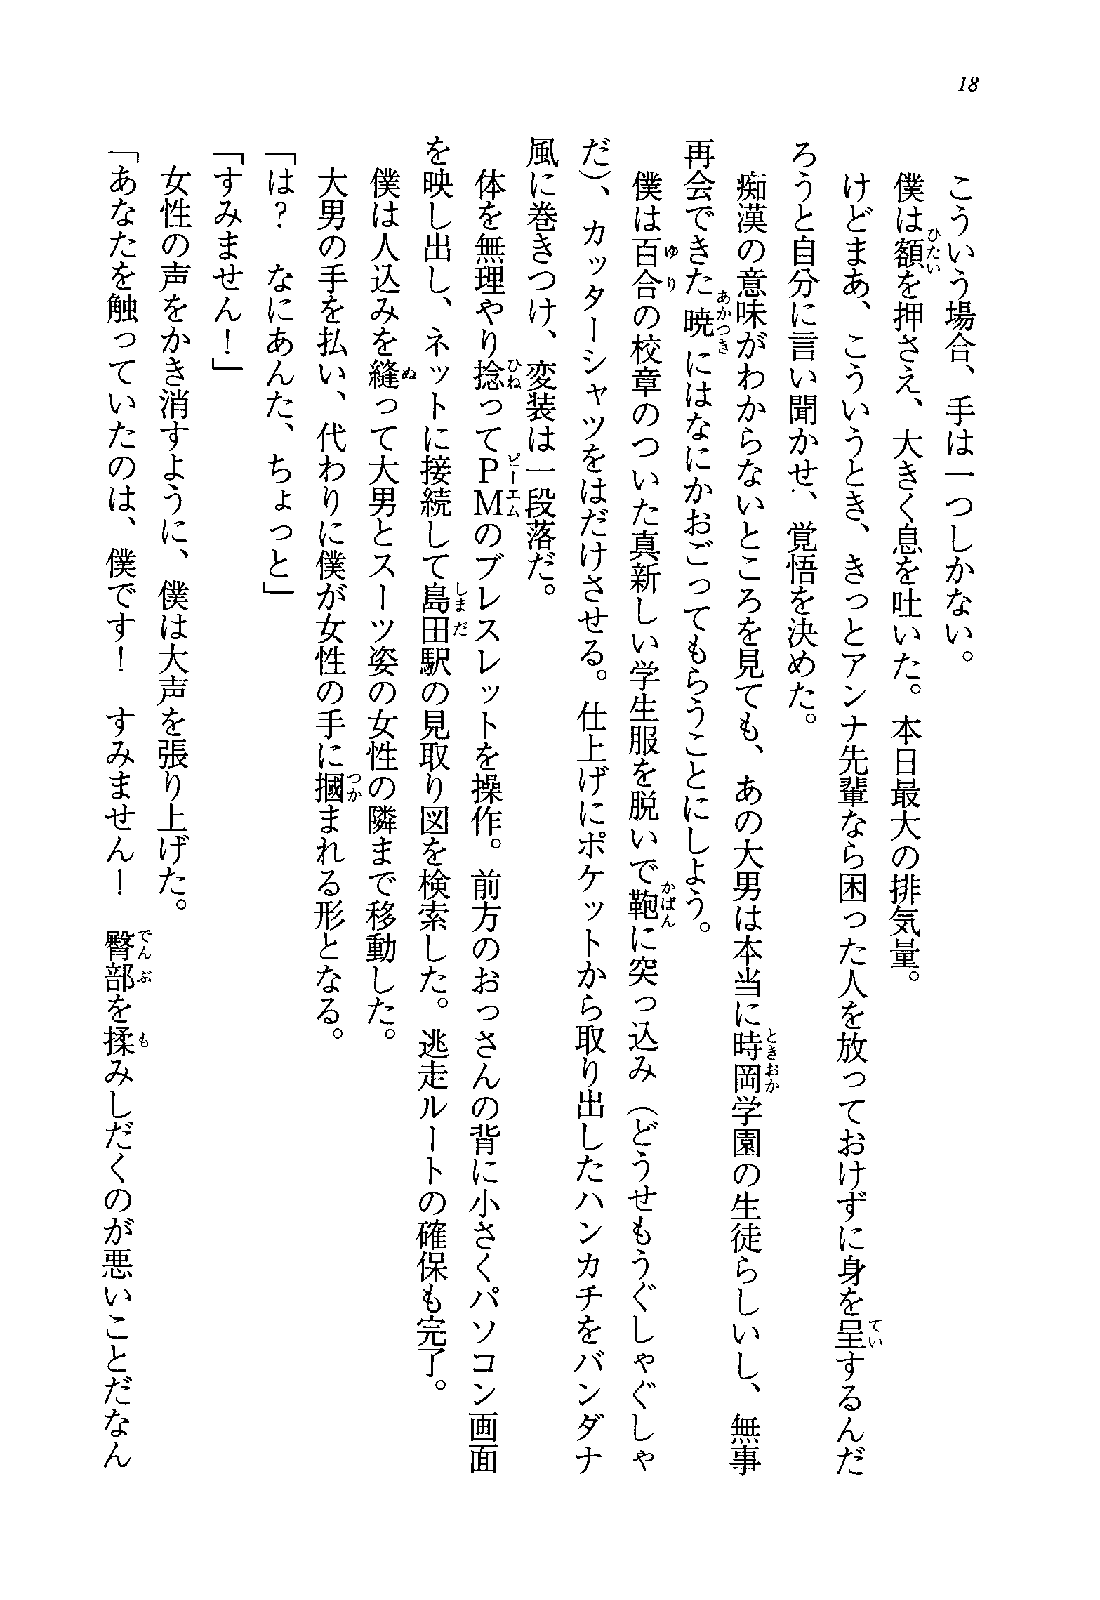 18
こういう場合、手は一つしかない。
僕は額を押さえ、大きく息を吐いた。本日最大の排気量。
けどまあ、こういうとき、きっとアンナ先輩なら困った人を放っておけずに身を呈するんだ
ろうと自分に言い聞かせ、覚悟を決めた。
痴漢の意味がわからないところを見ても、あの大男は本当に時岡学園の生徒らしいし、無事
再会できた暁にはなにかおごってもらうことにしよう。
僕は百合の校章のついた真新しい学生服を脱いで鞄に突っ込み（どうせもうぐしゃぐしゃ
だ）、カッターシャツをはだけさせる。仕上げにポケットから取り出したハンカチをバンダナ
風に巻きつけ、変装は一段落だ。
体を無理やり捻ってＰＭのブレスレットを操作。前方のおっさんの背に小さくパソコン画面
を映し出し、ネットに接続して島田駅の見取り図を検索した。逃走ルートの確保も完了。
僕は人込みを縫って大男とスーツ姿の女性の隣まで移動した。
大男の手を払い、代わりに僕が女性の手に摑まれる形となる。
「は？　なにあんた、ちょっと」
「すみません！」
女性の声をかき消すように、僕は大声を張り上げた。
「あなたを触っていたのは、僕です！　すみません！　臀部を揉みしだくのが悪いことだなん